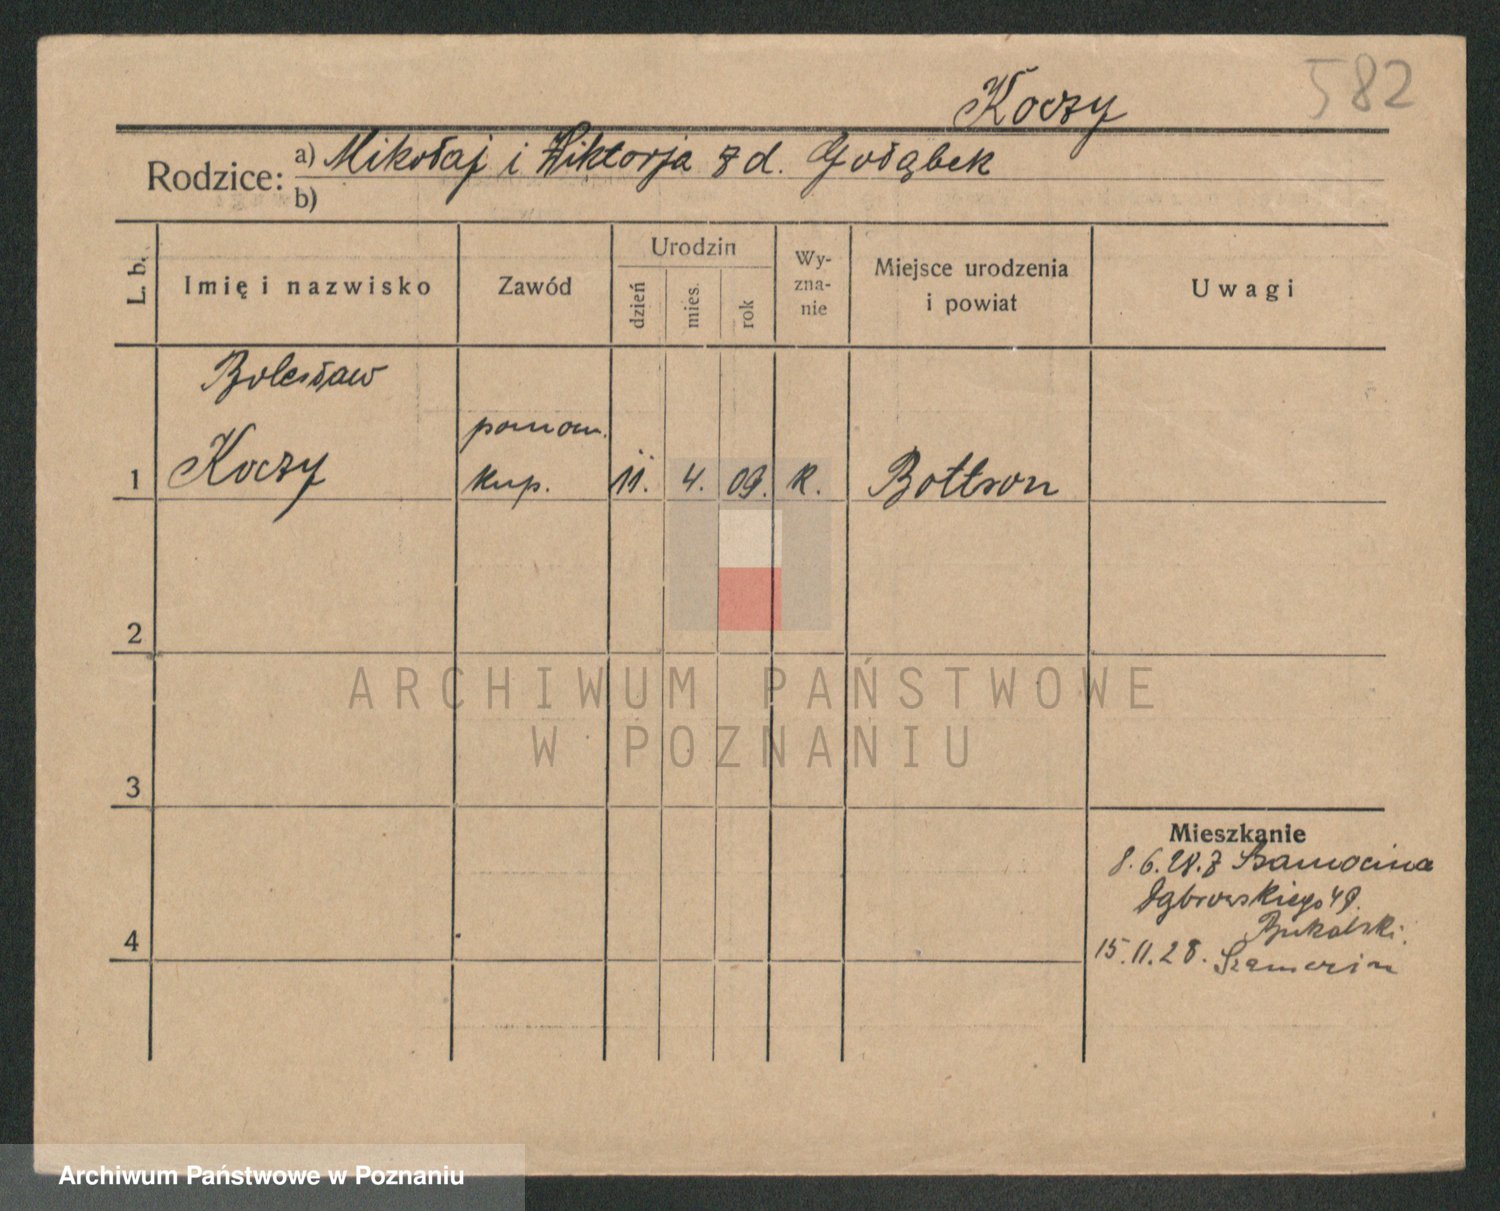 582
Koczy
Rodzice: a) Mikołaj i Wiktorja z d. Gołąbek
b)
L. b.
Imię i nazwisko
Zawód
Urodzin
dzień
mies.
rok
Wy-
zna-
nie
Miejsce urodzenia
i powiat
Uwagi
1
Bolesław
Koczy
pomocn.
kup.
11.
4.
09.
K.
Bottrop
2
3
4
Mieszkanie
8.6.28. z Szamocina
Dąbrowskiego 49.
15.11.28. Szamocin
ARCHIWUM PAŃSTWOWE
W POZNANIU
Archiwum Państwowe w Poznaniu